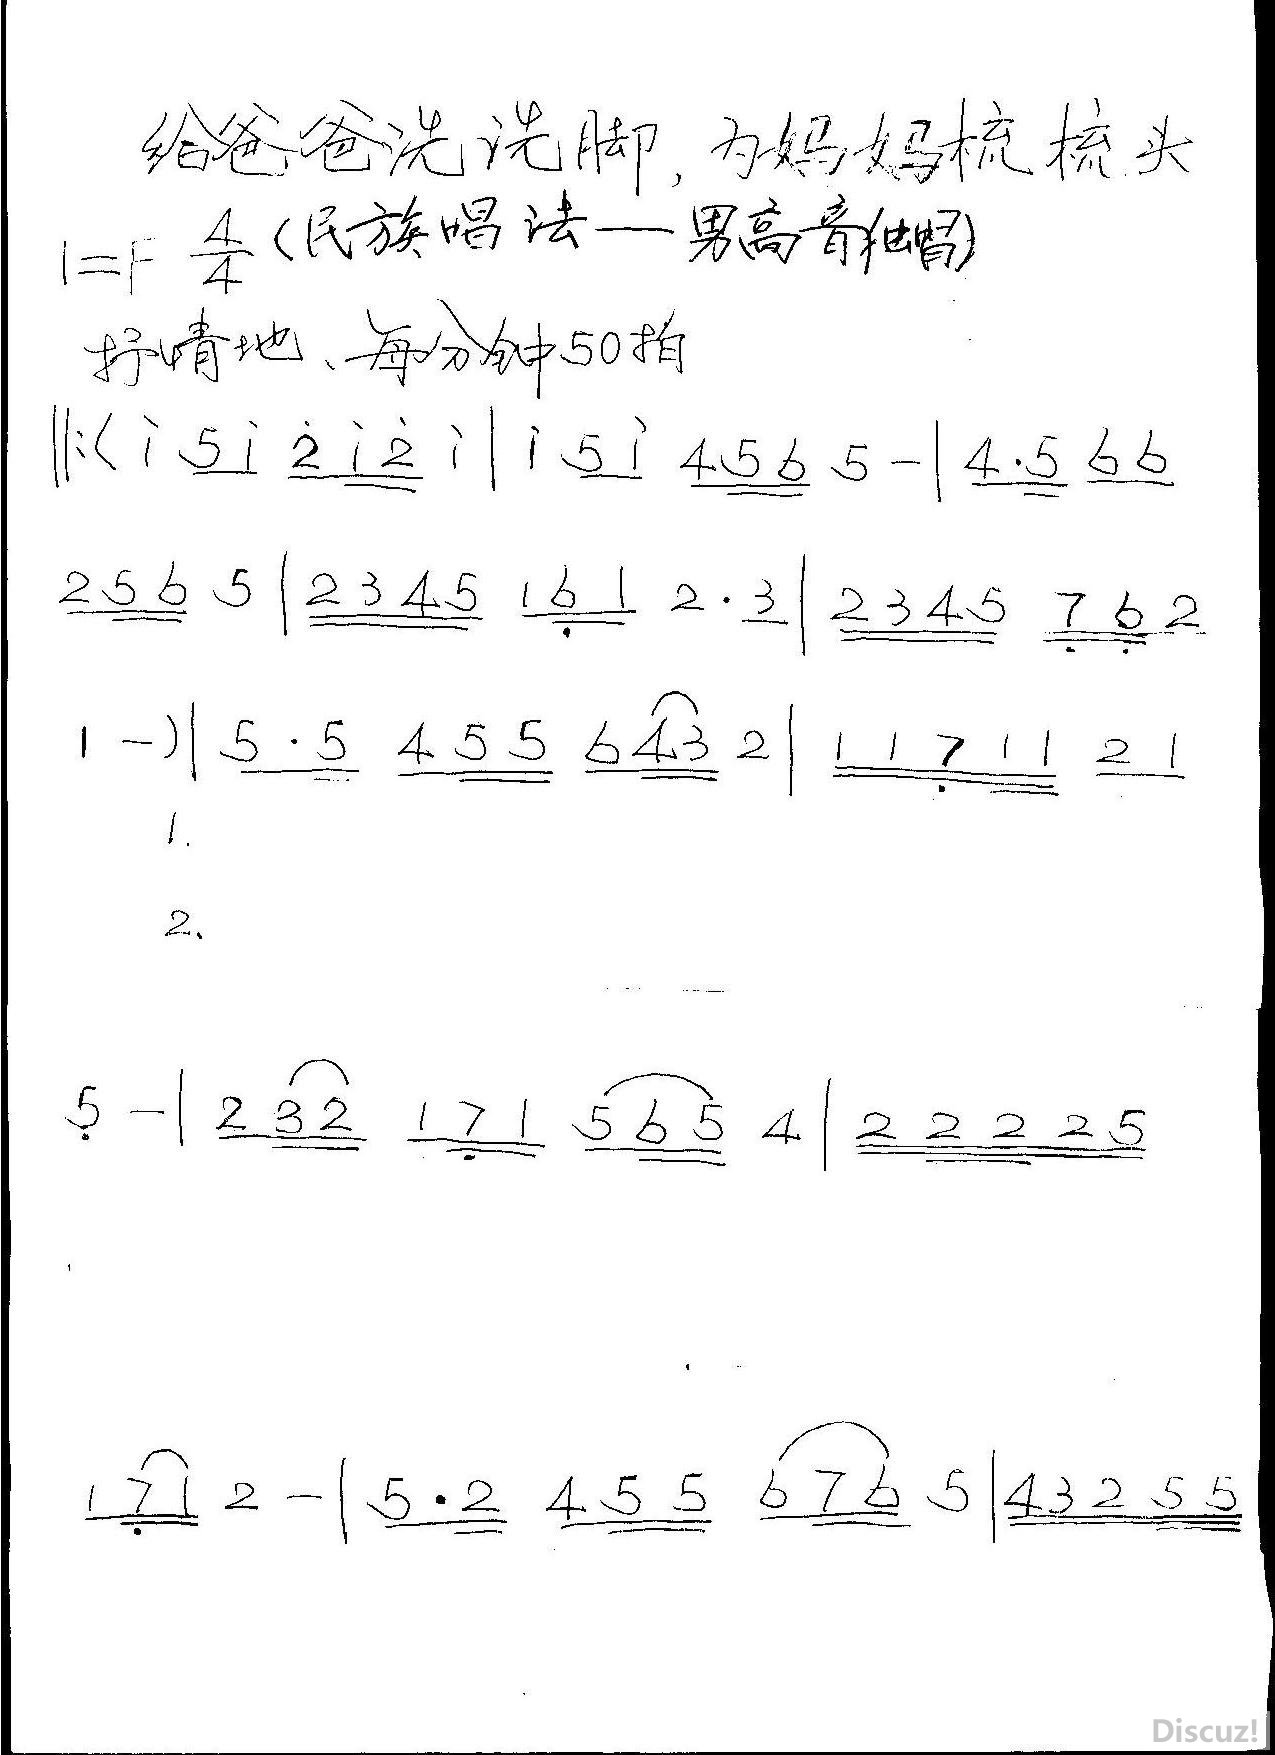 给爸爸洗洗脚,为妈妈梳梳头
1=F 4/4 (民族唱法—男高音独唱)
抒情地、每分钟50拍
‖:( i 5 i 2̇ i 2̇ i | i 5 i 4 5 6 5 - | 4·5 6 6
2 5 6 5 | 2 3 4 5 1 6̣ 1 2·3 | 2 3 4 5 7̣ 6̣ 2
1 -) | 5·5 4 5 5 6 4 3 2 | 1 1 7̣ 1 1 2 1
1.
2.
5̣ - | 2 3 2 1 7̣ 1 5 6 5 4 | 2 2 2 2 5
1 7̣ 1 2 - | 5·2 4 5 5 6 7 6 5 | 4 3 2 5 5
Discuz!